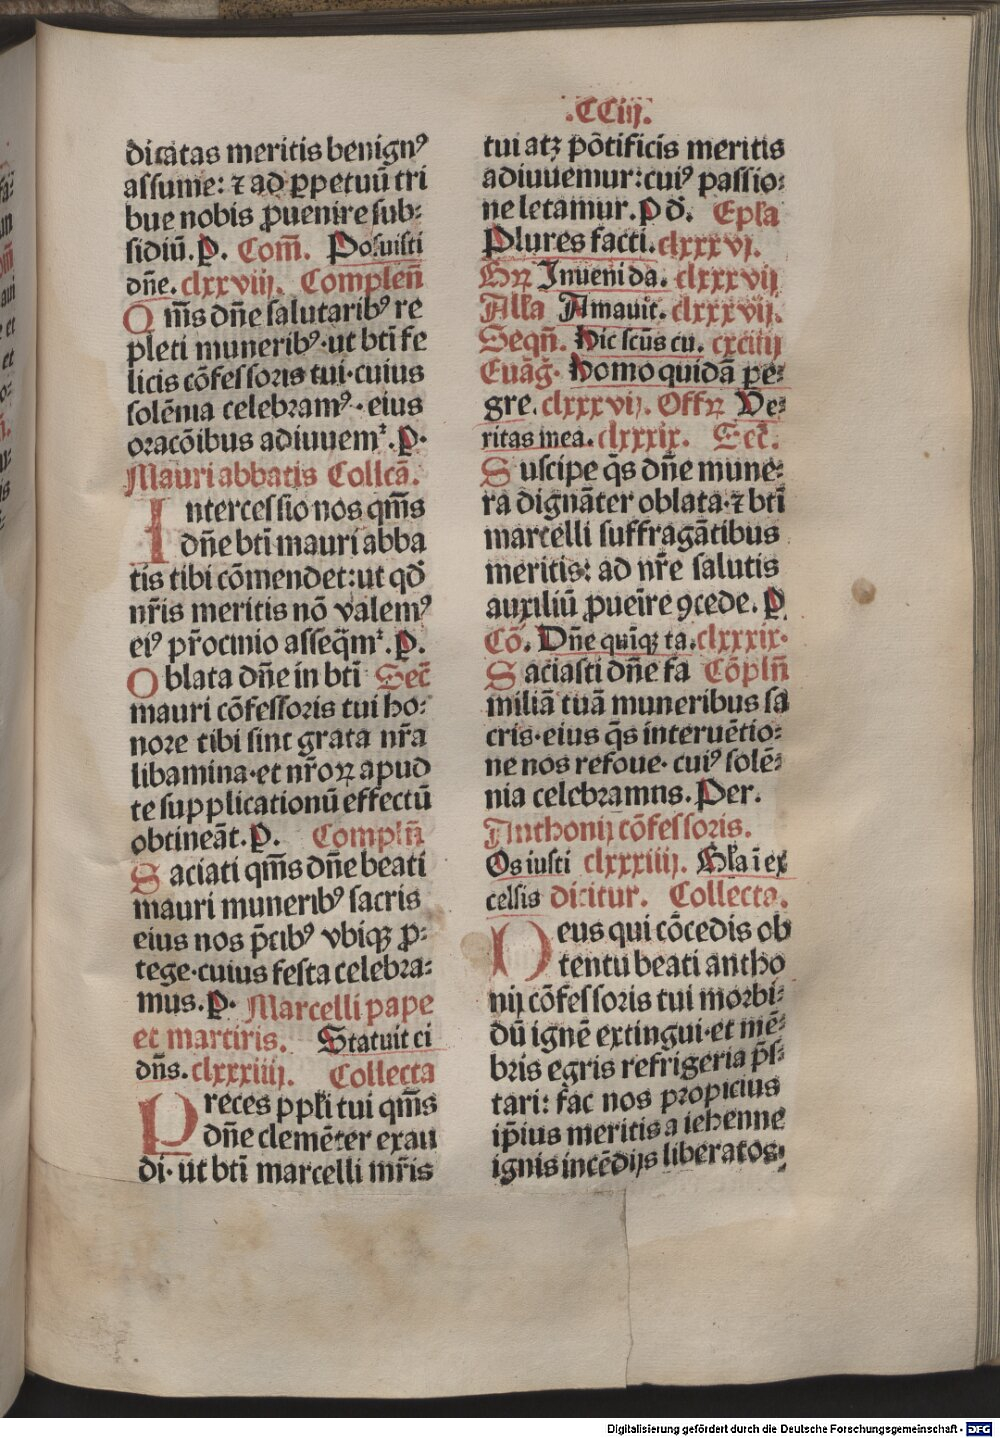 .CCiij.
dicatas meritis benignꝰ
assume: ⁊ ad ꝑpetuū tri
bue nobis ꝓuenire sub:
sidiū. P. Com̄. Posuisti
dn̄e. clxxviij. Complen̄
Om̄s dn̄e salutaribꝰ re
pleti muneribꝰ·ut bt̄i fe
licis cōfessoris tui·cuius
solēnia celebramꝰ·eius
oracōibus adiuuemᷣ. P.
Mauri abbatis Collcā.
Intercessio nos qm̄s
dn̄e bt̄i mauri abba
tis tibi cōmendet: ut qd̄
nr̄is meritis nō valemꝰ
eiꝰ pr̄ocinio asseq̄mᷣ. P.
Oblata dn̄e in bt̄i Sec̄
mauri cōfessoris tui ho:
nore tibi sint grata nr̄a
libamina·et nr̄oꝝ apud
te supplicationū effectū
obtineāt. P. Compln̄
Saciati qm̄s dn̄e beati
mauri muneribꝰ sacris
eius nos p̄cibꝰ vbiqꝫ ꝓ:
tege·cuius festa celebra:
mus. P. Marcelli pape
et martiris. Statuit ei
dn̄s. clxxxiiij. Collecta
Preces ppl̄i tui qm̄s
dn̄e clemēter exau
di·ut bt̄i marcelli mr̄is
tui atꝫ pōtificis meritis
adiuuemur: cuiꝰ passio:
ne letamur. P d̄. Epl̄a
Plures facti. clxxxvj.
Grꝝ Inueni da. clxxxvij
All̄a Amauit. clxxxvij.
Seqn̄. Hic scūs cu. cxciiij
Euāg̃. Homo quidā pe:
gre. clxxxvij. Offꝝ Ve:
ritas mea. clxxxix. Sec̄.
Suscipe q̄s dn̄e mune:
ra dignāter oblata·⁊ bt̄i
marcelli suffragātibus
meritis: ad nr̄e salutis
auxiliū ꝓueire ꝯcede. P
Cō. Dn̄e quīqꝫ ta. clxxxix·
Saciasti dn̄e fa Cōpln̄
miliā tuā muneribus sa
cris·eius q̄s interuētio:
ne nos refoue· cuiꝰ solē:
nia celebramus. Per.
Anthonij cōfessoris.
Os iusti clxxxiiij. Gl̄a ī ex
celsis dicitur. Collecta.
Deus qui cōcedis ob
tentu beati antho
nij cōfessoris tui morbi:
dū ignē extingui·et mē:
bris egris refrigeria p̄s:
tari: fac nos propicius
ip̄ius meritis a iehenne
ignis incēdijs liberatos:
Digitalisierung gefördert durch die Deutsche Forschungsgemeinschaft - DFG